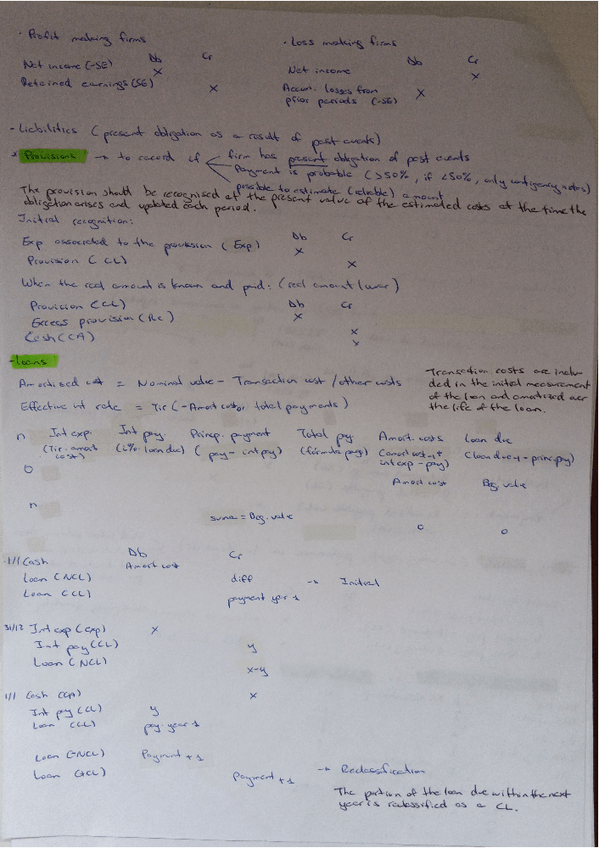 · Profit making firms
Db Cr
Net income (-SE) x
Retained earnings (SE) x
· Loss making firms
Db Cr
Net income x
Accum. losses from x
prior periods (-SE)
- Liabilities (present obligation as a result of past events)
Provisions → to record if firm has present obligation of past events
payment is probable (>50%, if <50%, only contigency notes)
possible to estimate (reliable) amount
The provision should be recognised at the present value of the estimated costs at the time the
obligation arises and updated each period.
Initial recognition:
Db Cr
Exp associated to the provision (Exp) x
Provision (CL) x
When the real amount is known and paid: (real amount lower)
Provision (CL) Db Cr
x
Excess provision (Inc) x
Cash (CA) x
- Loans
Amortised cost = Nominal value - Transaction cost / other costs
Effective int rate = Tir (-Amort cost or total payments)
Transaction costs are inclu-
ded in the initial measurement
of the loan and amortized over
the life of the loan.
n Int exp. Int pay. Princp. payment Total pay. Amort. costs Loan due
(Tir · amort (i% · loan due) (pay - int pay) (fórmula pago) (amort cost-1 + (loan due-1 - princ pay)
cost) int exp - pay)
0 Amort cost Beg. value
n
suma = Beg. value 0 0
Db Cr
1/1 Cash Amort cost
Loan (NCL) diff → Initial
Loan (CL) payment year 1
31/12 Int exp (exp) x
Int pay (CL) y
Loan (NCL) x-y
1/1 Cash (CA) x
Int pay (CL) y
Loan (CL) pay. year 1
Loan (-NCL) Payment + 1
Loan (+CL) Payment + 1 → Reclassification
The portion of the loan due within the next
year is reclassified as a CL.